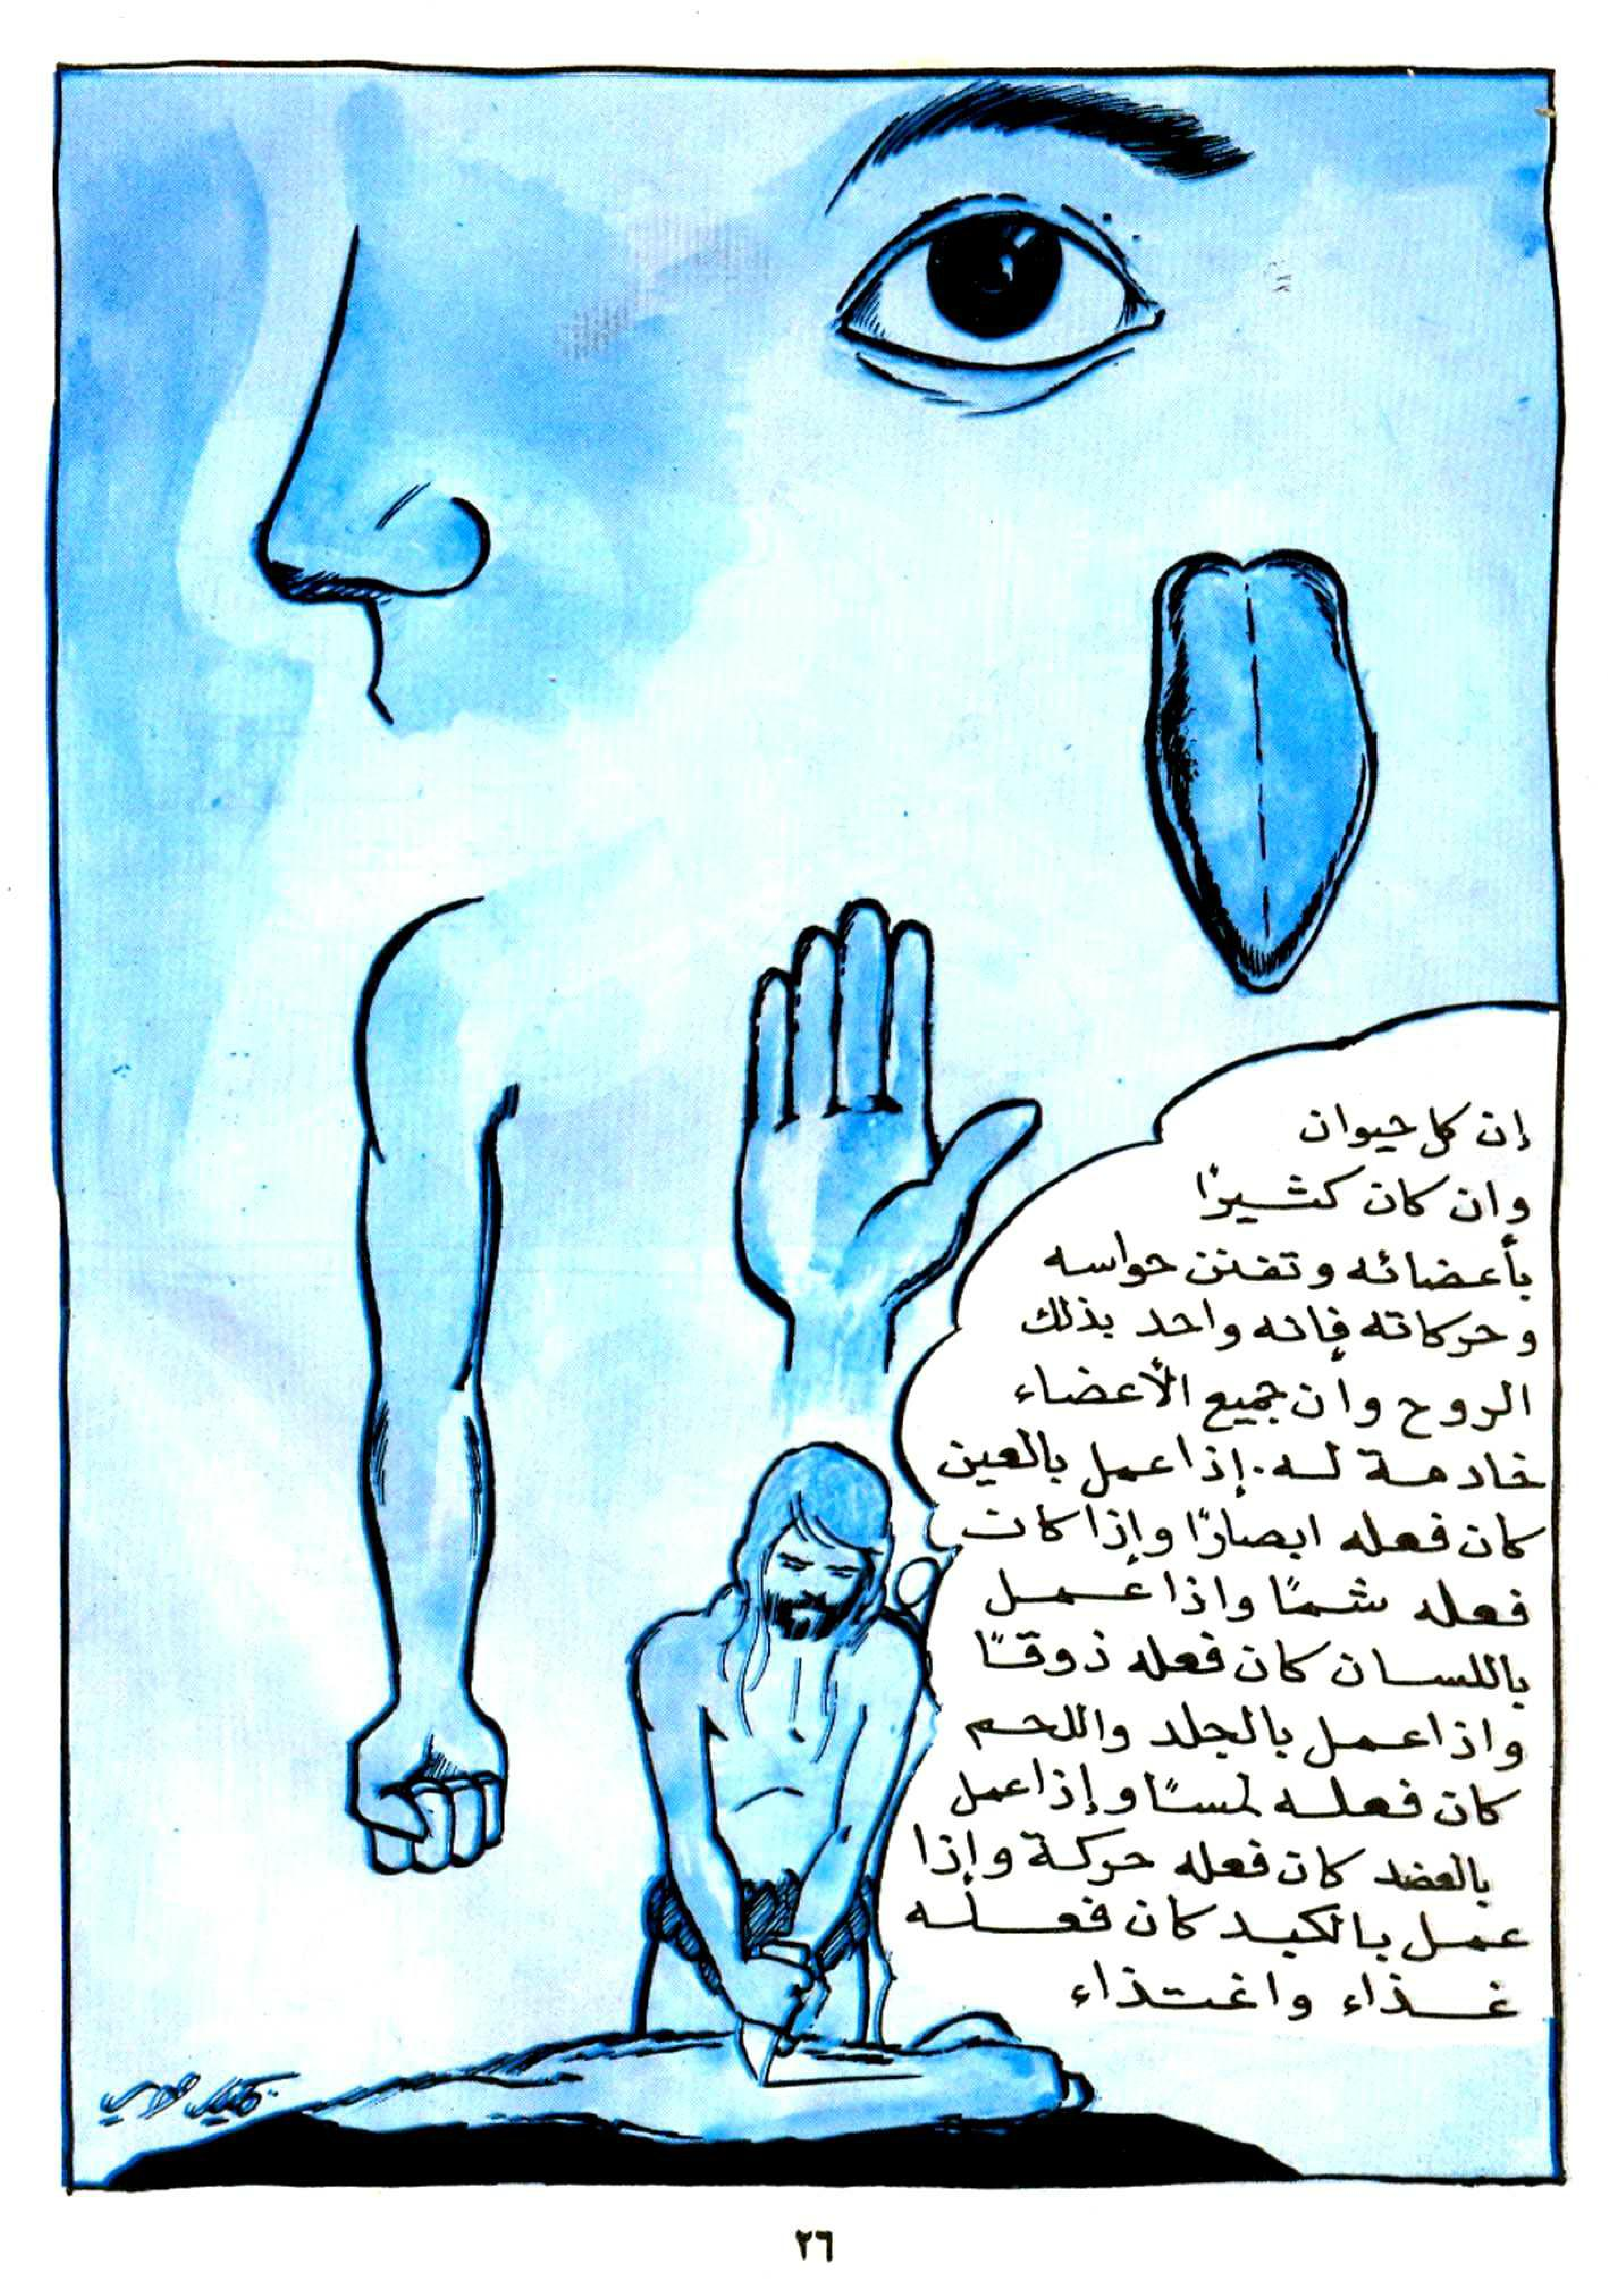 إن كل حيوان
وان كان كثيرًا
بأعضائه وتفنن حواسه
وحركاته فإنه واحد بذلك
الروح وان جميع الأعضاء
خادمة له. إذا عمل بالعين
كان فعله ابصارًا وإذا كان
فعله شمًا واذا عمل
باللسان كان فعله ذوقًا
واذا عمل بالجلد واللحم
كان فعله لمسًا وإذا عمل
بالعضد كان فعله حركة وإذا
عمل بالكبد كان فعله
غذاء واغتذاء
٢٦